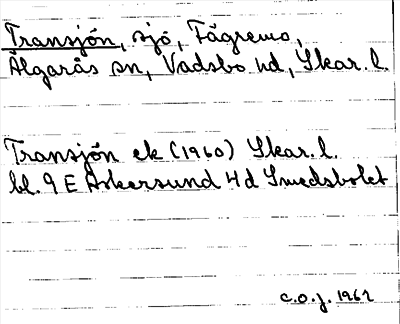 Transjön, sjö, Fägremo,
Älgarås sn, Vadsbo hd, Skar. l.
Transjön ek (1960) Skar. l.
bl. 9 E Askersund 4d Smedsbolet
C.O.J. 1962